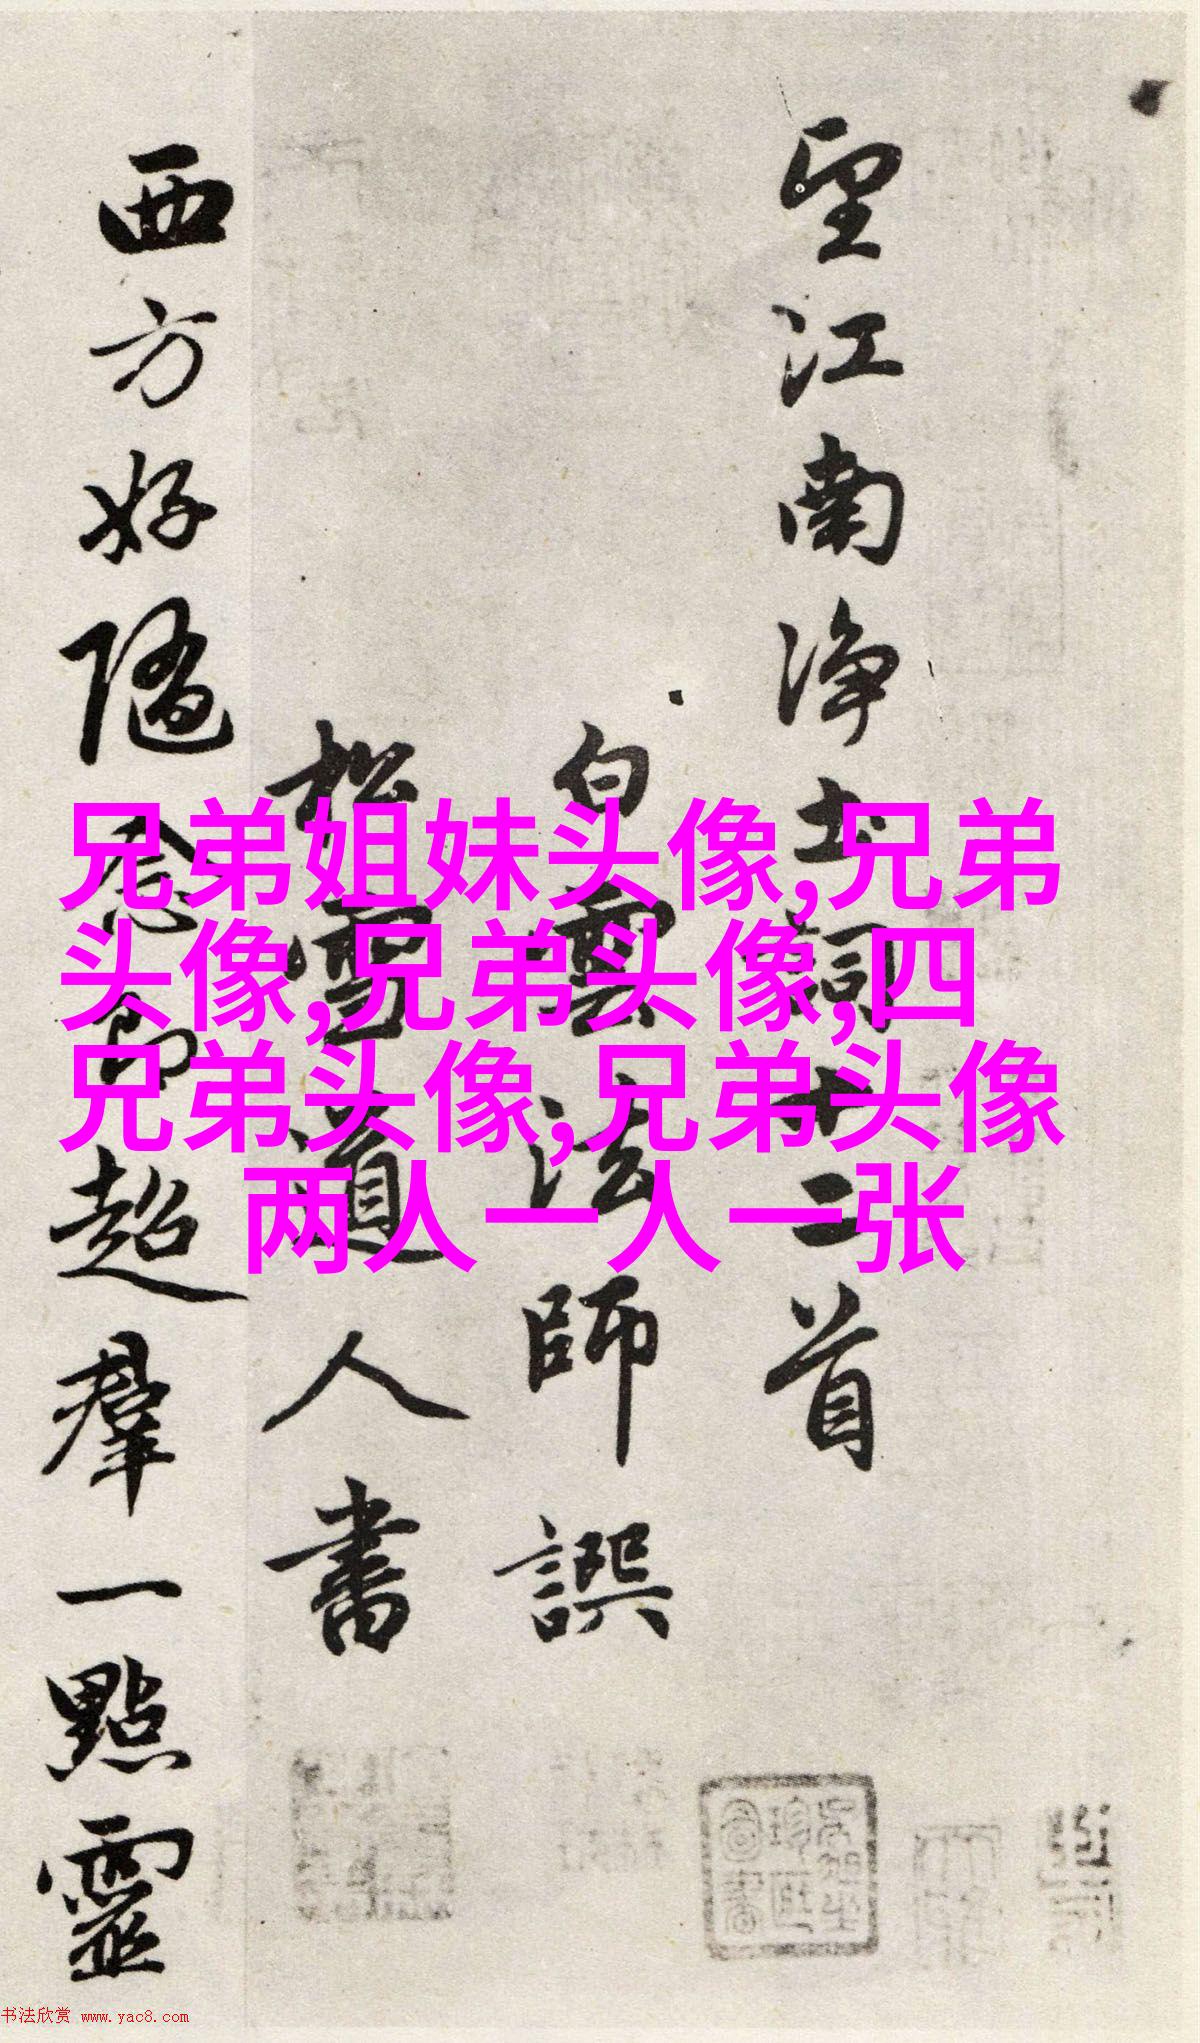 望江南淨土詞十二首
白雲法師譔
松雪道人書
西方好隨念即超羣一點靈
兄弟姐妹头像,兄弟
头像,兄弟头像,四
兄弟头像,兄弟头像
两人一人一张
书法欣赏 www.yac8.com